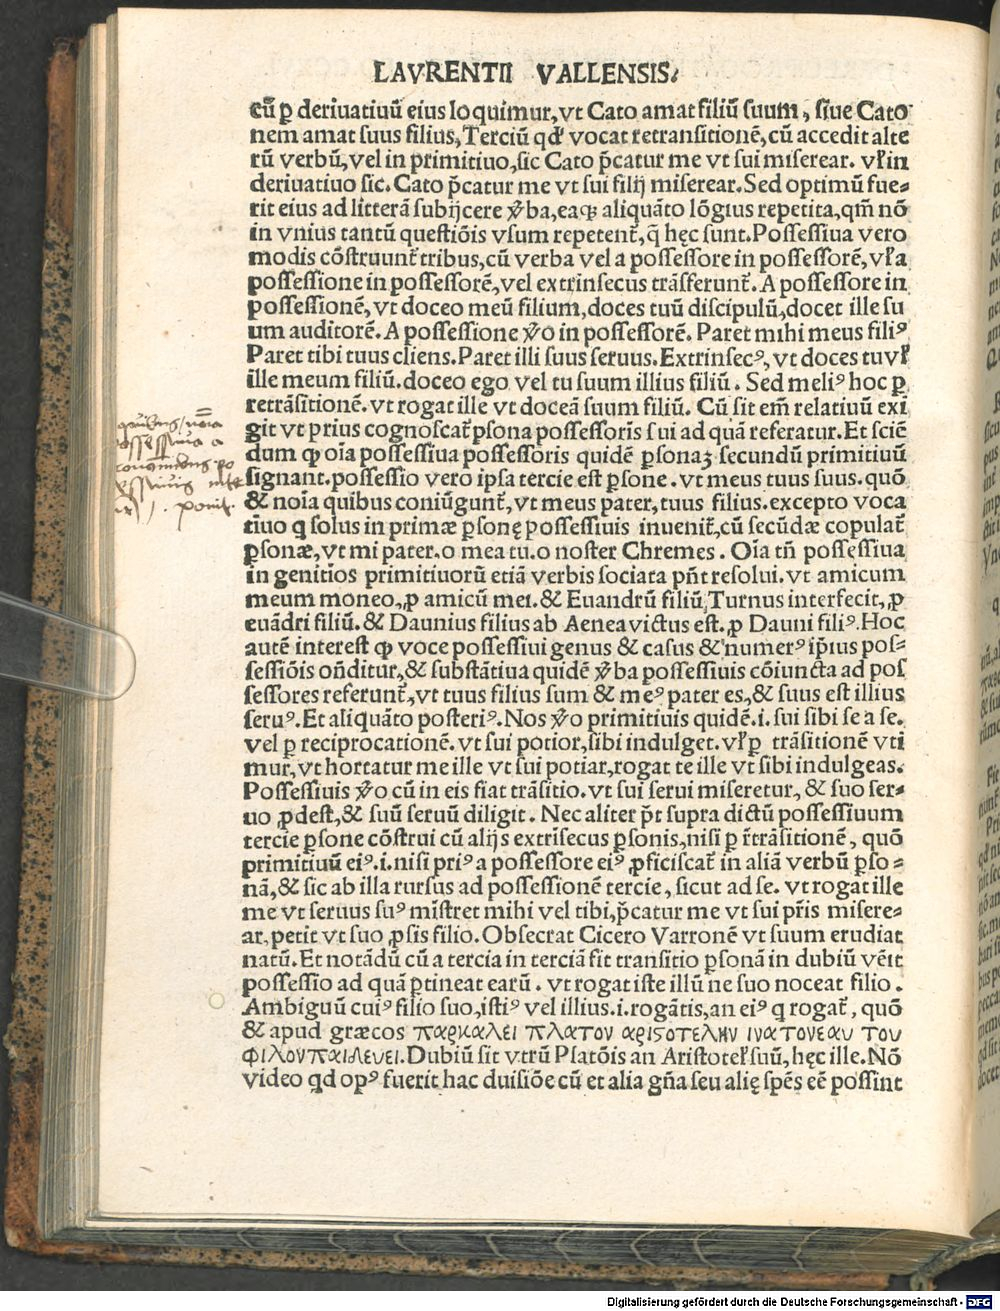 LAVRENTII VALLENSIS.
cū ꝑ deriuatiuū eius loquimur, vt Cato amat filiū suum, siue Cato
nem amat suus filius, Terciū qđ vocat retransitionē, cū accedit alte
rū verbū, vel in primitiuo, sic Cato p̄catur me vt sui miserear. vl̕ in
deriuatiuo sic. Cato p̄catur me vt sui filij miserear. Sed optimū fue-
rit eius ad litterā subijcere v̕ba, eaqꝫ aliquāto lōgius repetita, qm̄ nō
in vnius tantū questiōis vsum repetent̕, q̄ hęc sunt. Possessiua vero
modis cōstruunt̕ tribus, cū verba vel a possessore in possessorē, vl̕ a
possessione in possessorē, vel extrinsecus trāsferunt̕. A possessore in
possessionē, vt doceo meū filium, doces tuū discipulū, docet ille su
um auditorē. A possessione v̕o in possessorē. Paret mihi meus filiꝰ
Paret tibi tuus cliens. Paret illi suus seruus. Extrinsecꝰ, vt doces tu vl̕
ille meum filiū. doceo ego vel tu suum illius filiū. Sed meliꝰ hoc ꝑ
retrāsitionē. vt rogat ille vt doceā suum filiū. Cū sit em̄ relatiuū exi
git vt prius cognoscat̕ ꝑsona possessoris sui ad quā referatur. Et sciē
dum ꝙ oīa possessiua possessoris quidē ꝑsonaꝫ secundū primitiuū
signant. possessio vero ipsa tercie est ꝑsone. vt meus tuus suus. quō
& noīa quibus coniūgunt̕, vt meus pater, tuus filius. excepto voca
tiuo q solus in primæ ꝑsonę possessiuis inuenit̕, cū secūdæ copulat̕
ꝑsonæ, vt mi pater. o mea tu. o noster Chremes. Oīa tn̄ possessiua
in genitios primitiuorū etiā verbis sociata pn̄t resolui. vt amicum
meum moneo, ꝓ amicū mei. & Euandrū filiū, Turnus interfecit, ꝓ
euādri filiū. & Daunius filius ab Aenea victus est. ꝓ Dauni filiꝰ. Hoc
autē interest ꝙ voce possessiui genus & casus & numerꝰ ip̄ius pos-
sessiōis on̄ditur, & substātiua quidē v̕ba possessiuis cōiuncta ad pos
sessores referunt̕, vt tuus filius sum & meꝰ pater es, & suus est illius
seruꝰ. Et aliquāto posteriꝰ. Nos v̕o primitiuis quidē. i. sui sibi se a se.
vel ꝑ reciprocationē. vt sui potior, sibi indulget. vl̕ ꝑ trāsitionē vti
mur, vt hortatur me ille vt sui potiar, rogat te ille vt sibi indulgeas.
Possessiuis v̕o cū in eis fiat trāsitio. vt sui serui miseretur, & suo ser-
uo ꝓdest, & suū seruū diligit. Nec aliter p̄t supra dictū possessiuum
tercie ꝑsone cōstrui cū alijs extrīsecus ꝑsonis, nisi ꝑ r̄trāsitionē, quō
primitiuū eiꝰ. i. nisi priꝰ a possessore eiꝰ ꝓficiscat̕ in aliā verbū ꝑso-
nā, & sic ab illa rursus ad possessionē tercie, sicut ad se. vt rogat ille
me vt seruus suꝰ mīstret mihi vel tibi, p̄catur me vt sui pr̄is misere-
ar, petit vt suo ꝓsis filio. Obsecrat Cicero Varronē vt suum erudiat
natū. Et notādū cū a tercia in terciā fit transitio ꝑsonā in dubiū vēit
possessio ad quā ꝑtineat earū. vt rogat iste illū ne suo noceat filio.
Ambiguū cuiꝰ filio suo, istiꝰ vel illius. i. rogātis, an eiꝰ q rogat̕, quō
& apud græcos παρκαλει πλατον αριστοτελην ινατονεαυ του
φιλονπαιδευει. Dubiū sit vtrū Platōis an Aristotel̕ suū, hęc ille. Nō
video qđ opꝰ fuerit hac duisiōe cū et alia gn̄a seu alię spēs eē possint
Digitalisierung gefördert durch die Deutsche Forschungsgemeinschaft - DFG